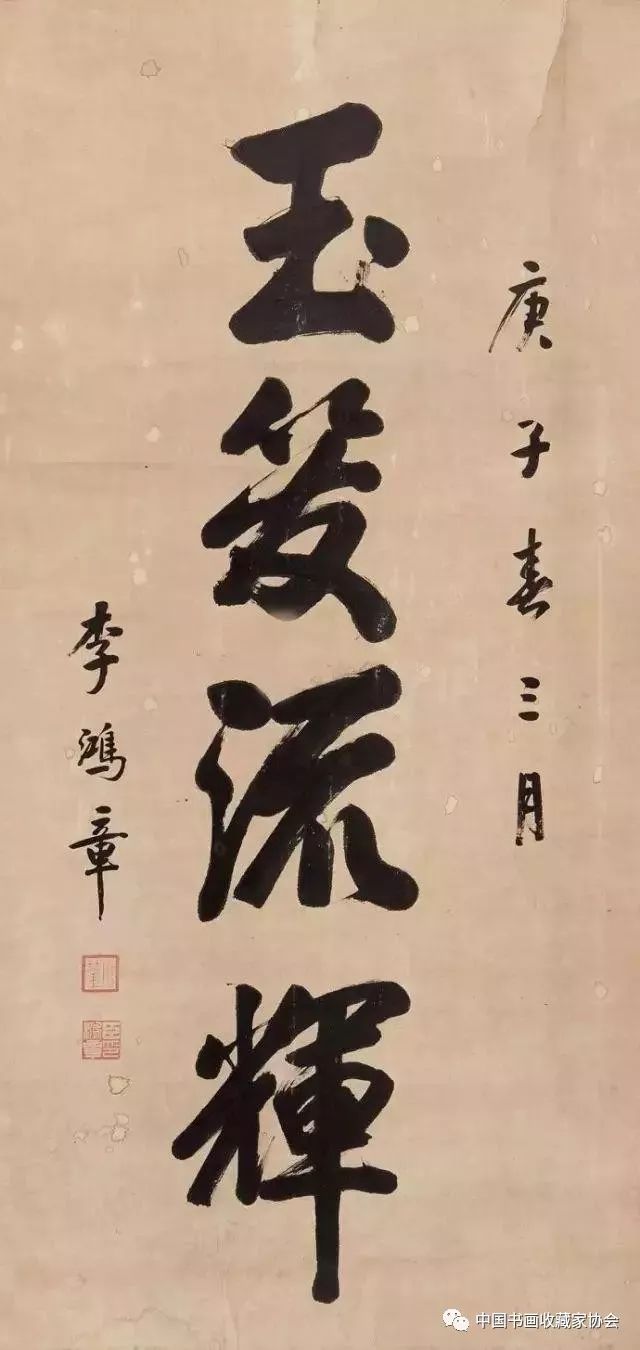 庚子春三月
玉發流輝
李鴻章
中国书画收藏家协会